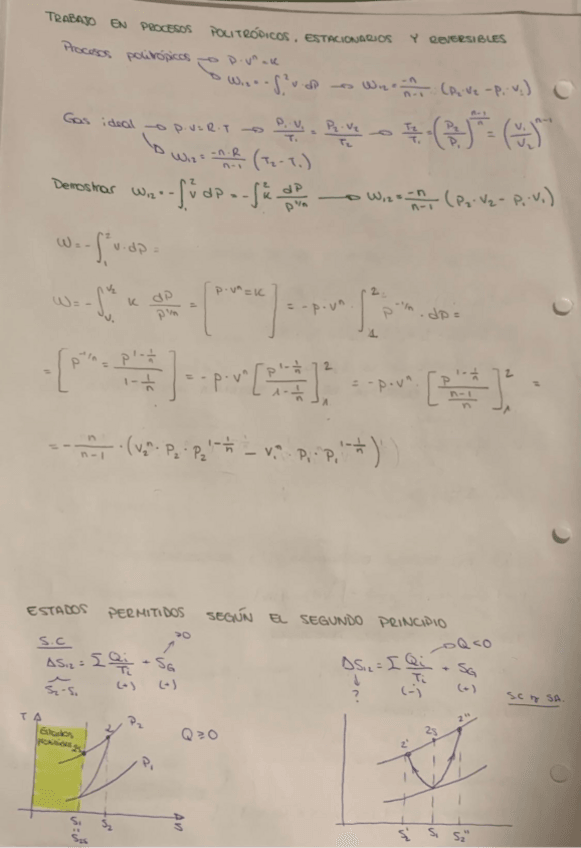 TRABAJO EN PROCESOS POLITRÓPICOS, ESTACIONARIOS Y REVERSIBLES
Procesos politrópicos → P·vⁿ=K
W₁₂=-∫₁² v·dP → W₁₂=-n/(n-1)·(P₂·V₂-P₁·V₁)
Gas ideal → P·V=R·T → P₁·V₁/T₁=P₂·V₂/T₂ → T₂/T₁=(P₂/P₁)^((n-1)/n)=(V₁/V₂)^(n-1)
W₁₂=-n·R/(n-1) (T₂-T₁)
Demostrar W₁₂=-∫₁² v dP=-∫₁² K dP/P^(1/n) → W₁₂=-n/(n-1) (P₂·V₂-P₁·V₁)
W=-∫₁² v·dP=
W=-∫_V₁^V₂ K dP/P^(1/n) = [P·vⁿ=K] = -P·vⁿ·∫₁² P^(-1/n)·dP=
=[P^(-1/n)=P^(1-1/n)/(1-1/n)] = -P·vⁿ[P^(1-1/n)/(1-1/n)]₁² = -P·vⁿ·[P^(1-1/n)/((n-1)/n)]₁² =
=-n/(n-1)·(V₂ⁿ·P₂·P₂^(1-1/n) - V₁ⁿ·P₁·P₁^(1-1/n))
ESTADOS PERMITIDOS SEGÚN EL SEGUNDO PRINCIPIO
S.C
≥0
ΔS₁₂=Σ Qi/Ti + SG
S₂-S₁ (+) (+)
T
P₂
2
2s
P₁
Q≥0
S₁
S₂
S
Q<0
ΔS₁₂=Σ Qi/Ti + SG
? (-) (+)
2'
2s
2''
S₂'
S₁
S₂''